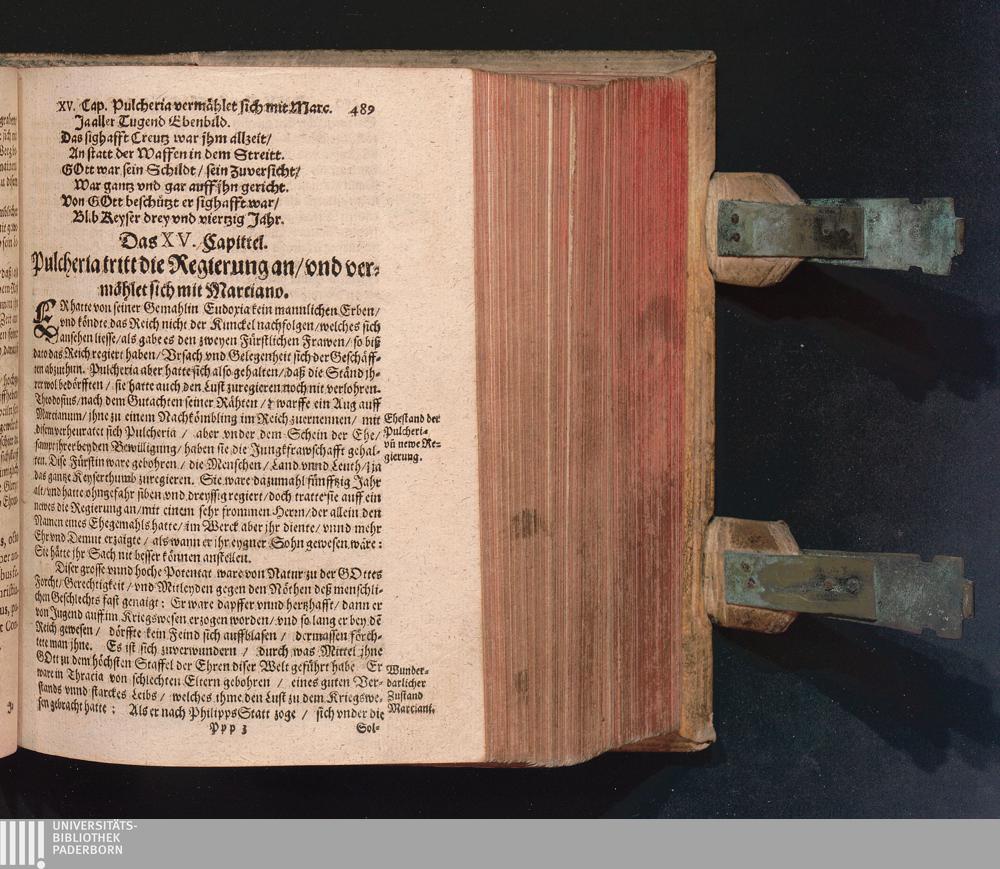 XV. Cap. Pulcheria vermählet sich mit Marc. 489
Ja aller Tugend Ebenbild.
Das sighafft Creutz war jhm allzeit/
An statt der Waffen in dem Streitt.
GOtt war sein Schildt/ sein Zuversicht/
War gantz vnd gar auff jhn gericht.
Von GOtt beschützt er sighafft war/
Blib Keyser drey vnd viertzig Jahr.
Das XV. Capittel.
Pulcheria tritt die Regierung an/ vnd ver-
mählet sich mit Martiano.
ER hatte von seiner Gemahlin Eudoxia kein mannlichen Erben/
vnd köndte das Reich nicht der Kunckel nachfolgen/ welches sich
ansehen liesse/ als gabe es den zweyen Fürstlichen Frawen/ so biß
dato das Reich regiert haben/ Vrsach vnd Gelegenheit sich der Geschäff-
ten abzuthun. Pulcheria aber hatte sich also gehalten/ daß die Ständ jh-
rer wol bedörfften/ sie hatte auch den Lust zuregieren noch nit verlohren.
Theodosius/ nach dem Gutachten seiner Rähten/ warffe ein Aug auff
Martianum/ jhne zu einem Nachkömbling im Reich zuernennen/ mit
disem verheuratet sich Pulcheria/ aber vnder dem Schein der Ehe/
sampt jhrer beyden Bewilligung/ haben sie die Jungkfrawschafft gehal-
ten. Dise Fürstin ware gebohren/ die Menschen/ Land vnnd Leuth/ ja
das gantze Keyserthumb zuregieren. Sie ware dazumahl fünfftzig Jahr
alt/ vnd hatte ohngefahr siben vnd dreyssig regiert/ doch tratte sie auff ein
newes die Regierung an/ mit einem sehr frommen Herrn/ der allein den
Namen eines Ehegemahls hatte/ im Werck aber jhr diente/ vnnd mehr
Ehr vnd Demut erzaigte/ als wann er jhr eygner Sohn gewesen wäre:
Sie hätte jhr Sach nit besser können anstellen.
Diser grosse vnnd hohe Potentat ware von Natur zu der GOttes
Forcht/ Gerechtigkeit/ vnd Mitleyden gegen den Nöthen deß menschli-
chen Geschlechts fast genaigt: Er ware dapffer vnnd hertzhafft/ dann er
von Jugend auff im Kriegswesen erzogen worden/ vnd so lang er bey dē
Reich gewesen/ dörffte kein Feind sich auffblasen/ dermassen förch-
tete man jhne. Es ist sich zuverwundern/ durch was Mittel jhne
GOtt zu dem höchsten Staffel der Ehren diser Welt geführt habe Er
ware in Thracia von schlechten Eltern gebohren/ eines guten Ver-
stands vnnd starckes Leibs/ welches ihme den Lust zu dem Kriegswe-
sen gebracht hatte: Als er nach Philipps Statt zoge/ sich vnder die
Ppp 3 Sol-
Ehestand der
Pulcheri-
vñ newe Re-
gierung.
Wunder-
barlicher
Zustand
Martiani.
UNIVERSITÄTS-
BIBLIOTHEK
PADERBORN